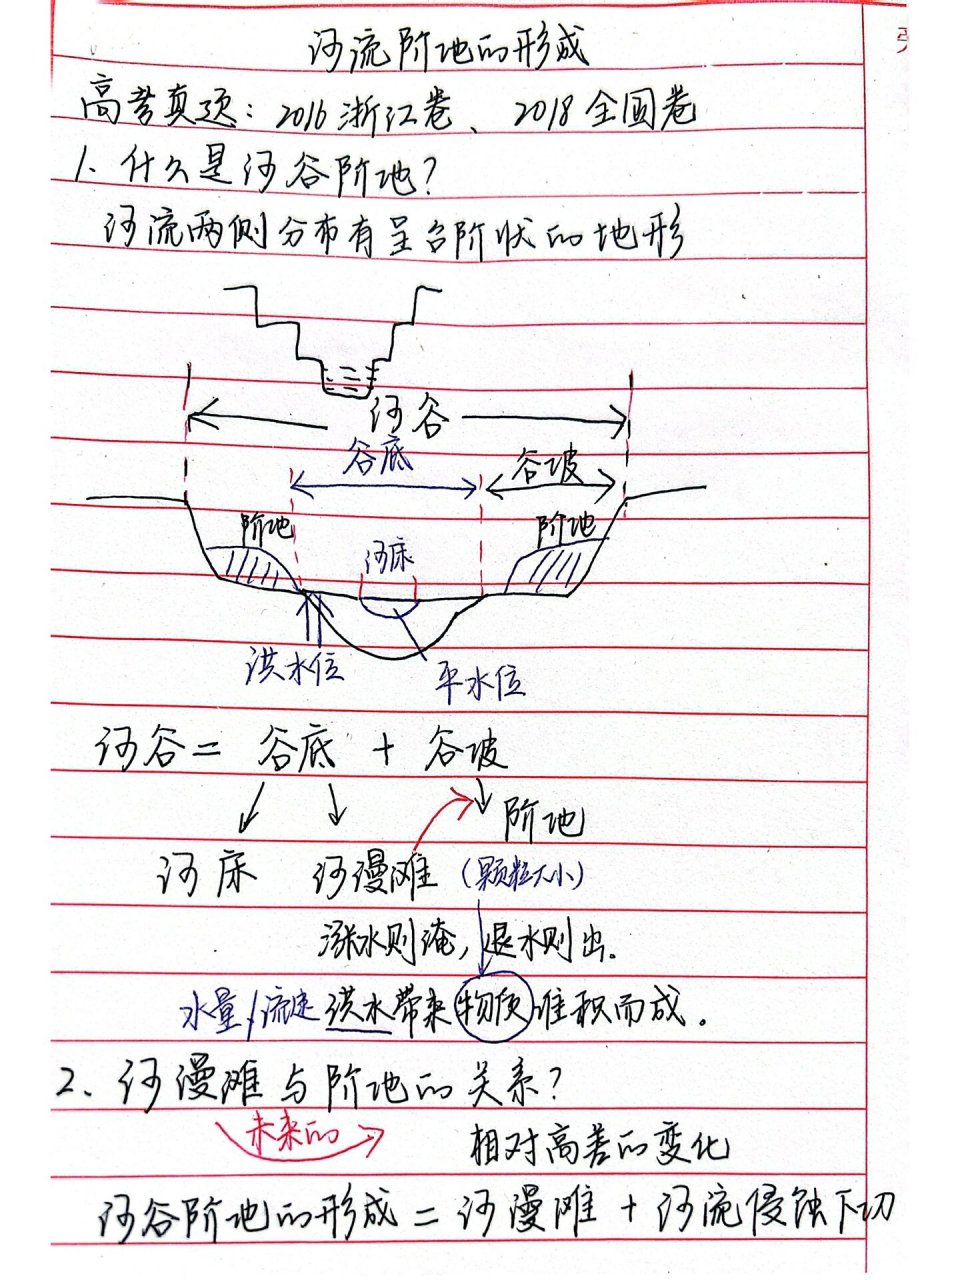 河流阶地的形成
高考真题：2016浙江卷、2018全国卷
1. 什么是河谷阶地？
河流两侧分布有呈台阶状的地形
河谷
谷底 谷坡
阶地 河床 阶地
洪水位 平水位
河谷 = 谷底 + 谷坡
阶地
河床 河漫滩 (颗粒大小)
涨水则淹，退水则出.
水量/流速 洪水带来物质堆积而成。
2、河漫滩与阶地的关系？
未来的 相对高差的变化
河谷阶地的形成 = 河漫滩 + 河流侵蚀下切